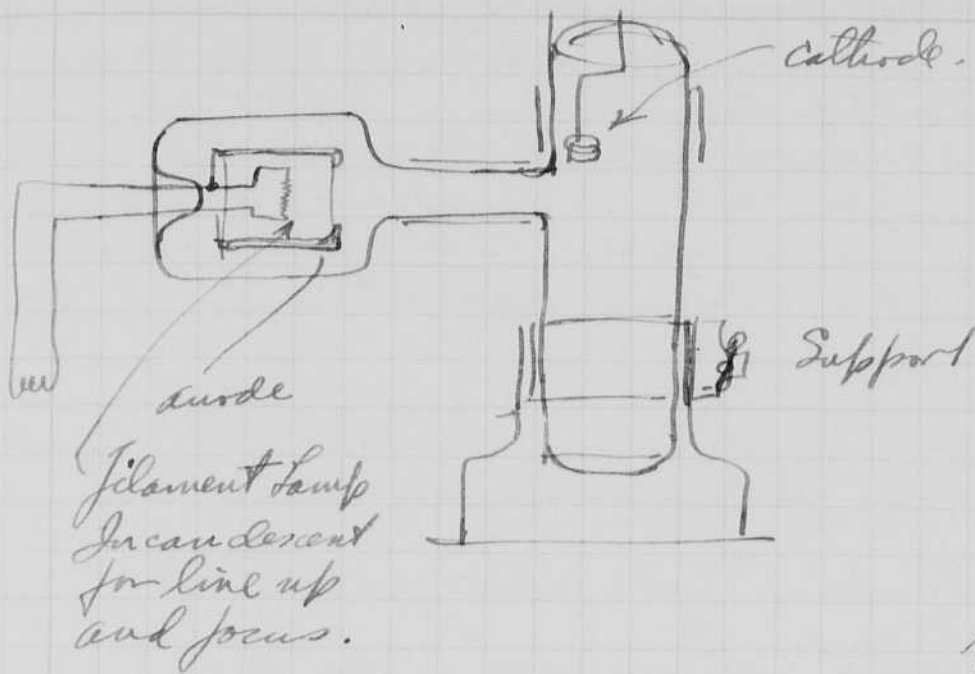 cathode.
Support
anode
Filament Lamp
Incandescent
for line up
and focus.